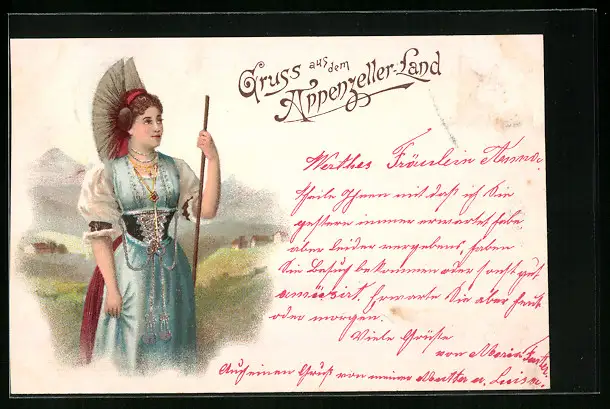 Gruss aus dem
Appenzeller-Land
Werthes Fräulein Anna.
Theile Ihnen mit daß ich Sie
gestern immer erwartet habe
aber leider vergebens, haben
Sie Besuch bekommen oder sonst gut
amüsirt. Erwarte Sie aber heut
oder morgen.
Viele Grüße
von Maria
Auch einen Gruß von meiner Mutter u. Luise.